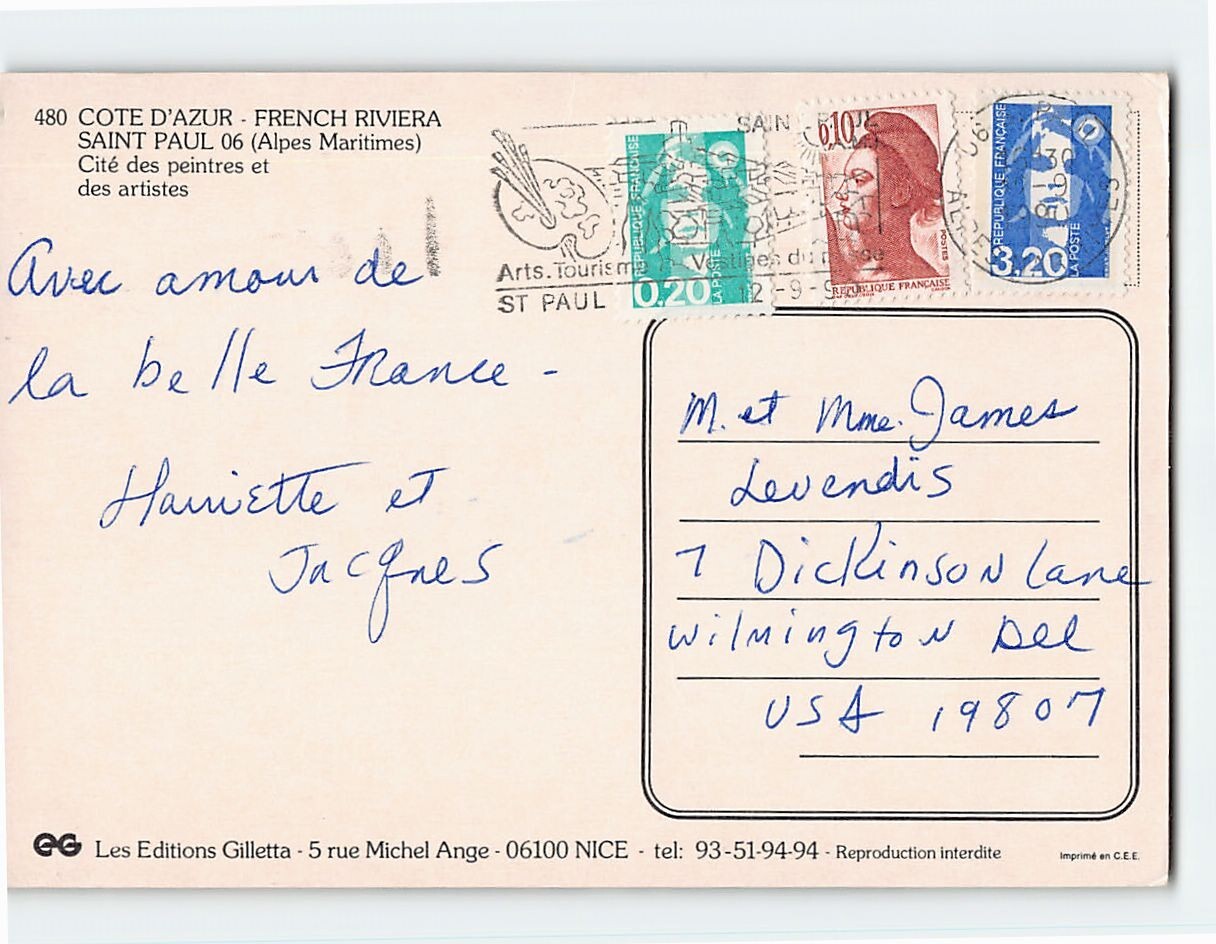 480 COTE D'AZUR - FRENCH RIVIERA
SAINT PAUL 06 (Alpes Maritimes)
Cité des peintres et
des artistes
Arts. Tourisme Vestiges du passé
ST PAUL
REPUBLIQUE FRANÇAISE
LA POSTE
0.20
0,10
POSTES
REPUBLIQUE FRANÇAISE
REPUBLIQUE FRANÇAISE
LA POSTE
3,20
Avec amour de
la belle France -
Harriette et
Jacques
M. et Mme. James
Levendis
7 Dickinson Lane
Wilmington Del
USA 19807
EG Les Editions Gilletta - 5 rue Michel Ange - 06100 NICE - tel: 93-51-94-94 - Reproduction interdite
Imprimé en C.E.E.